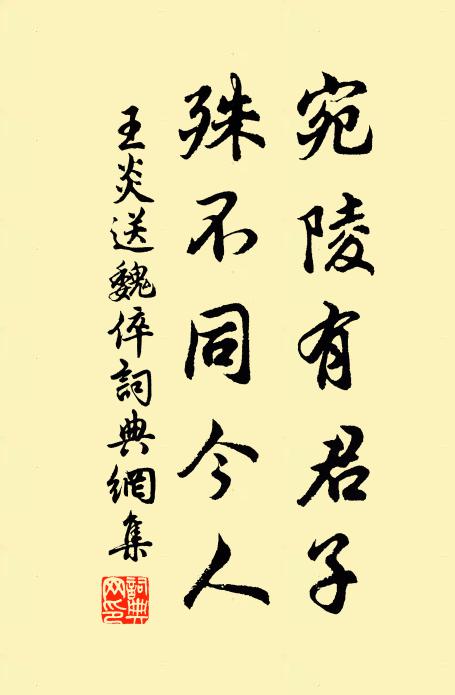 宛陵有君子
殊不同今人
王炎送魏倅詞典網集
詞典
网印